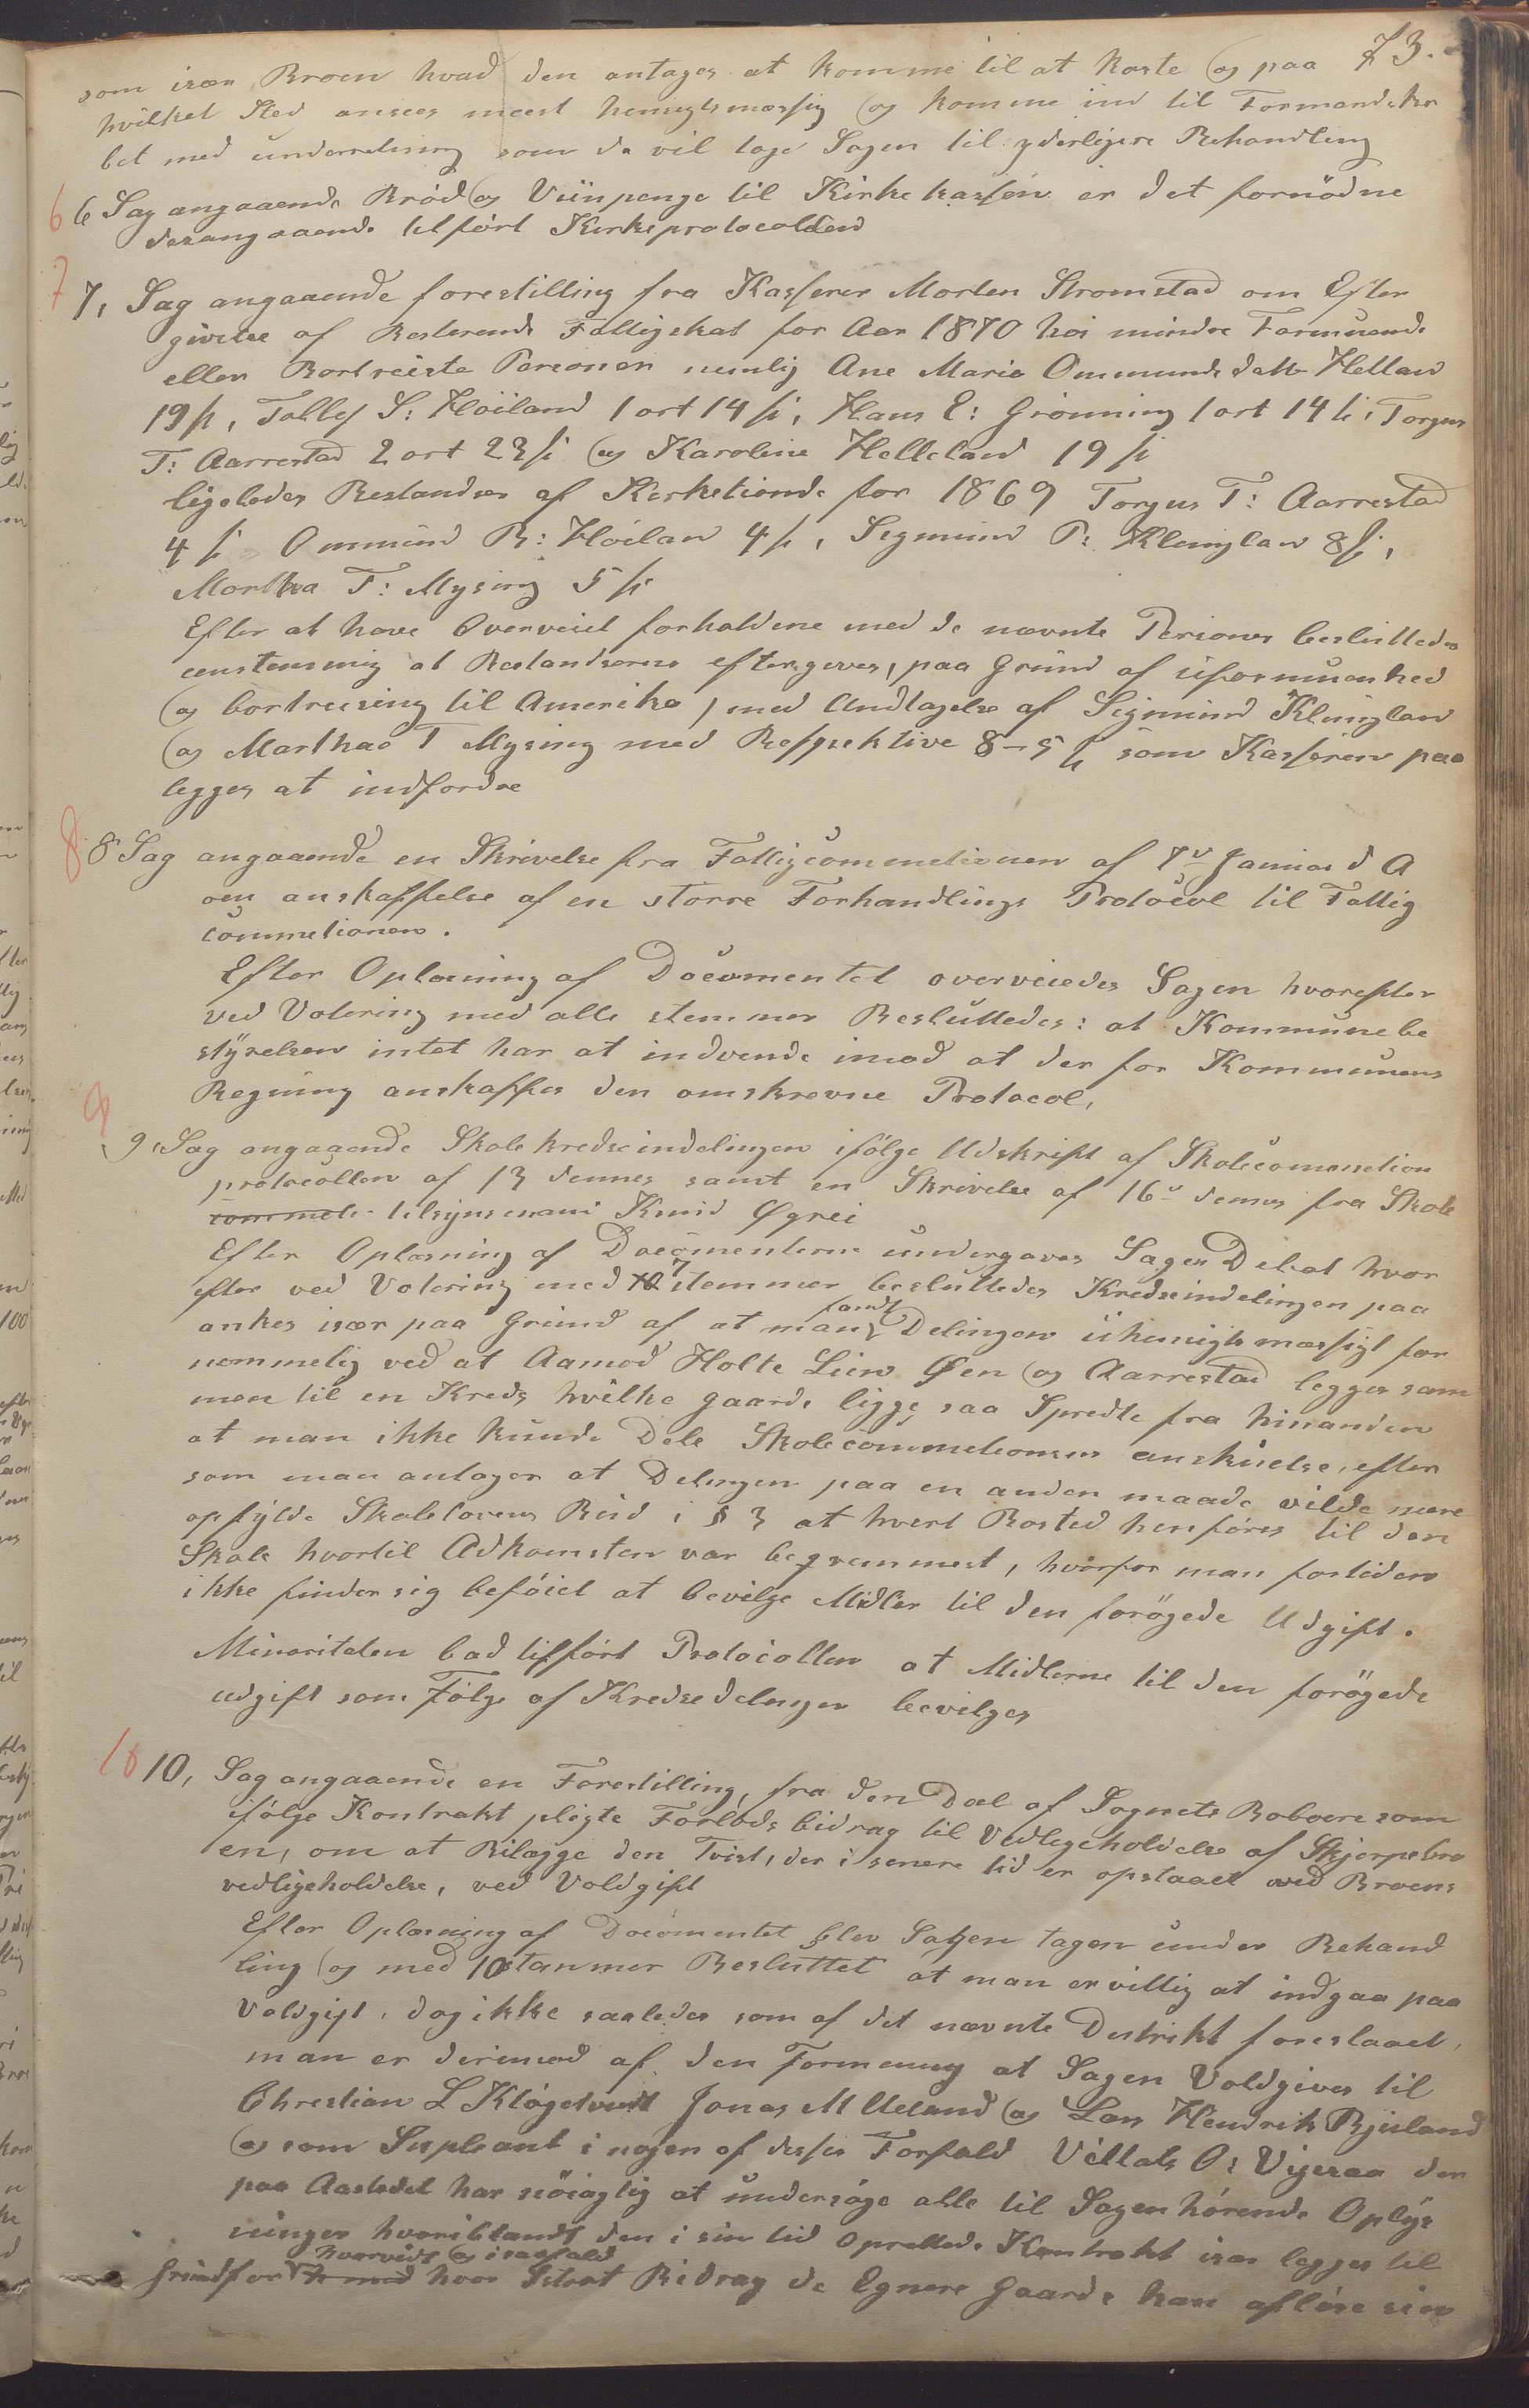 73.
som især Broen hvad den antages at komme til at koste og paa
hvilket Sted ansees meest hensigtsmæssig og komme ind til Formandska
bet med underretning som da vil tage Sagen til yderligere Behandling
6 6 Sag angaaende Brød og Viinpenge til Kirkekassen er det fornödne
desangaaende tilført Kirkeprotocollen
7 7, Sag angaaende forestilling fra Kasserer Morten Stromstad om Efter
givelse af Resterende Fattigskat for Aar 1870 hos mindre Formuende
eller Bortreiste Personer nemlig Ane Marie Ommundsdatt Helland
19 ß, Tollef S: Høiland 1 ort 14 ß, Hans E: Grønning 1 ort 14 ß, Torger
T: Aarrestad 2 ort 23 ß og Karoline Helleland 19 ß
ligeledes Restandser af Kirketiende for 1869 Torger T: Aarrestad
4 ß Ommund B: Høilan 4 ß, Sigmund P: Klunglan 8 ß,
Martha T: Mysing 5 ß
Efter at have Overveiet forholdene med de nævnte Personer besluttedes
eenstemmig at Restandserne eftergives, paa Grund af uformuenhed
og bortreising til Amerika, med Undtagelse af Sigmund Klunglan
og Marthae T Mysing med Respektive 8 – 5 ß som Kasseren paa
legges at indfordre
8 8 Sag angaaende en Skrivelse fra Fattigcommetionen af 7de Januar d A
om anskaffelse af en større Forhandlings Protocol til Fattig
commetionen.
Efter Oplæsning af Documentet overveiedes Sagen hvorefter
ved Votering med alle stemmer Besluttedes: at Kommunebe
styrelsen intet har at indvende imod at der for Kommunens
Regning anskaffes den omskrevne Protocol,
9 9, Sag angaaende Skolekredseindelingen ifølge Udskrift af Skolecommetion
protocollen af 13 dennes samt en Skrivelse af 16de dennes fra Skole
commeti tilsynsmand Knud Øgrei
Efter Oplæsning af Documenterne undergaves Sagen Debat hvor
efter ved Votering med 10 7 stemmer besluttedes Kredseindelingen paa
ankes især paa Grund af at man fandt Delingen uhensigtsmæssigt for
nemmelig ved at Aamod Holte Lien Øen og Aarrestad legges sam
men til en Kreds hvilke Gaarde ligge saa Spredte fra hinanden
at man ikke kunde Dele Skolecommetionens anskuelse, efter
som man antager at Delingen paa en anden maade vilde mere
opfylde Skolelovens Bud i § 3 at hvert Bosted henføres til den
Skole hvortil Adkomsten var beqvemmest, hvorfor man fortiden
ikke finder sig beføiet at bevilge Midler til den forøgede Udgift.
Minoriteten bad tilført Protocollen at Midlerne til den forøgede
udgift som Følge af Kredsedelingen bevilges
10 10, Sag angaaende en Forestilling, fra den Deel af Sognets Beboere som
ifølge Kontrakt pligte Forlods bidrag til Vedlegeholdelse af Skjerpebro
en, om at Bilægge den Tvist, der i senere tid er opstaaet ved Broens
vedligeholdelse, ved Voldgift
Efter Oplæsning af Documentet blev Sagen tagen under Behand
ling og med 10 stemmer Besluttet at man er villig at indgaa paa
Voldgift, dog ikke saaledes som af det nævnte Destrikt foreslaaet,
man er derimod af den Formening at Sagen Voldgives til
Christian L Kløgetvedt Jonas M Ueland og Lars Hendrik Bjuland
og som Supleant i nogen af disses Forfald Villats O: Vigesaa der
paa Aastedet har nöiagtig at undersøge alle til Sagen hørende Oplys
ninger hvoriblandt den i sin tid Oprettede Kontrakt især legges til
hvorvidt og isaafald
Grund for hvor Stort Bidrag de Egnere Gaarde kan afløse sin